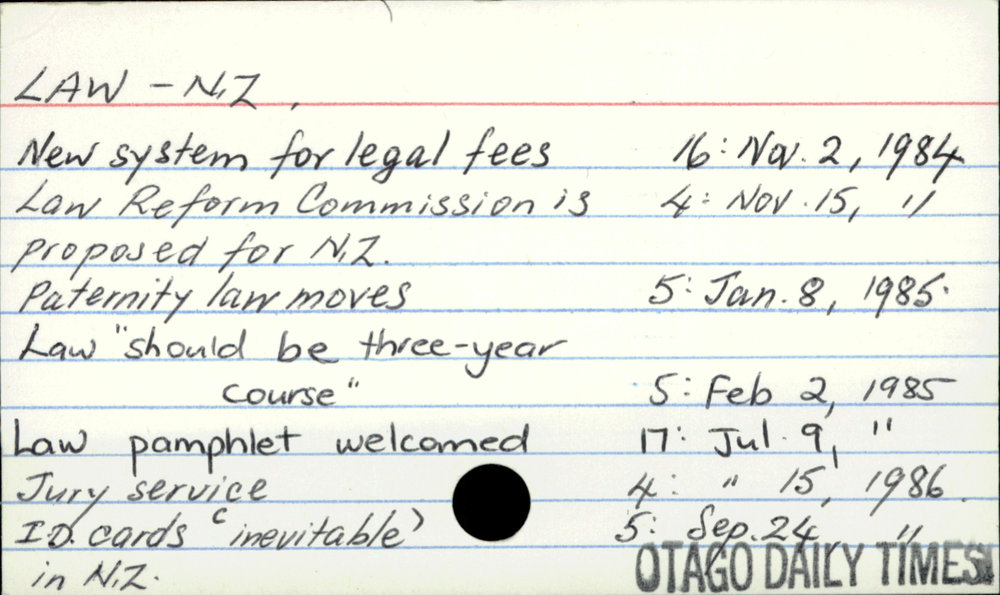 LAW - N.Z.
New system for legal fees 16: Nov. 2, 1984
Law Reform Commission is 4: Nov. 15, "
proposed for N.Z.
Paternity law moves 5: Jan. 8, 1985.
Law "should be three-year
course" 5: Feb 2, 1985
Law pamphlet welcomed 17: Jul. 9, "
Jury service 4: " 15, 1986.
I.D. cards 'inevitable' 5: Sep. 24, "
in N.Z.
OTAGO DAILY TIMES